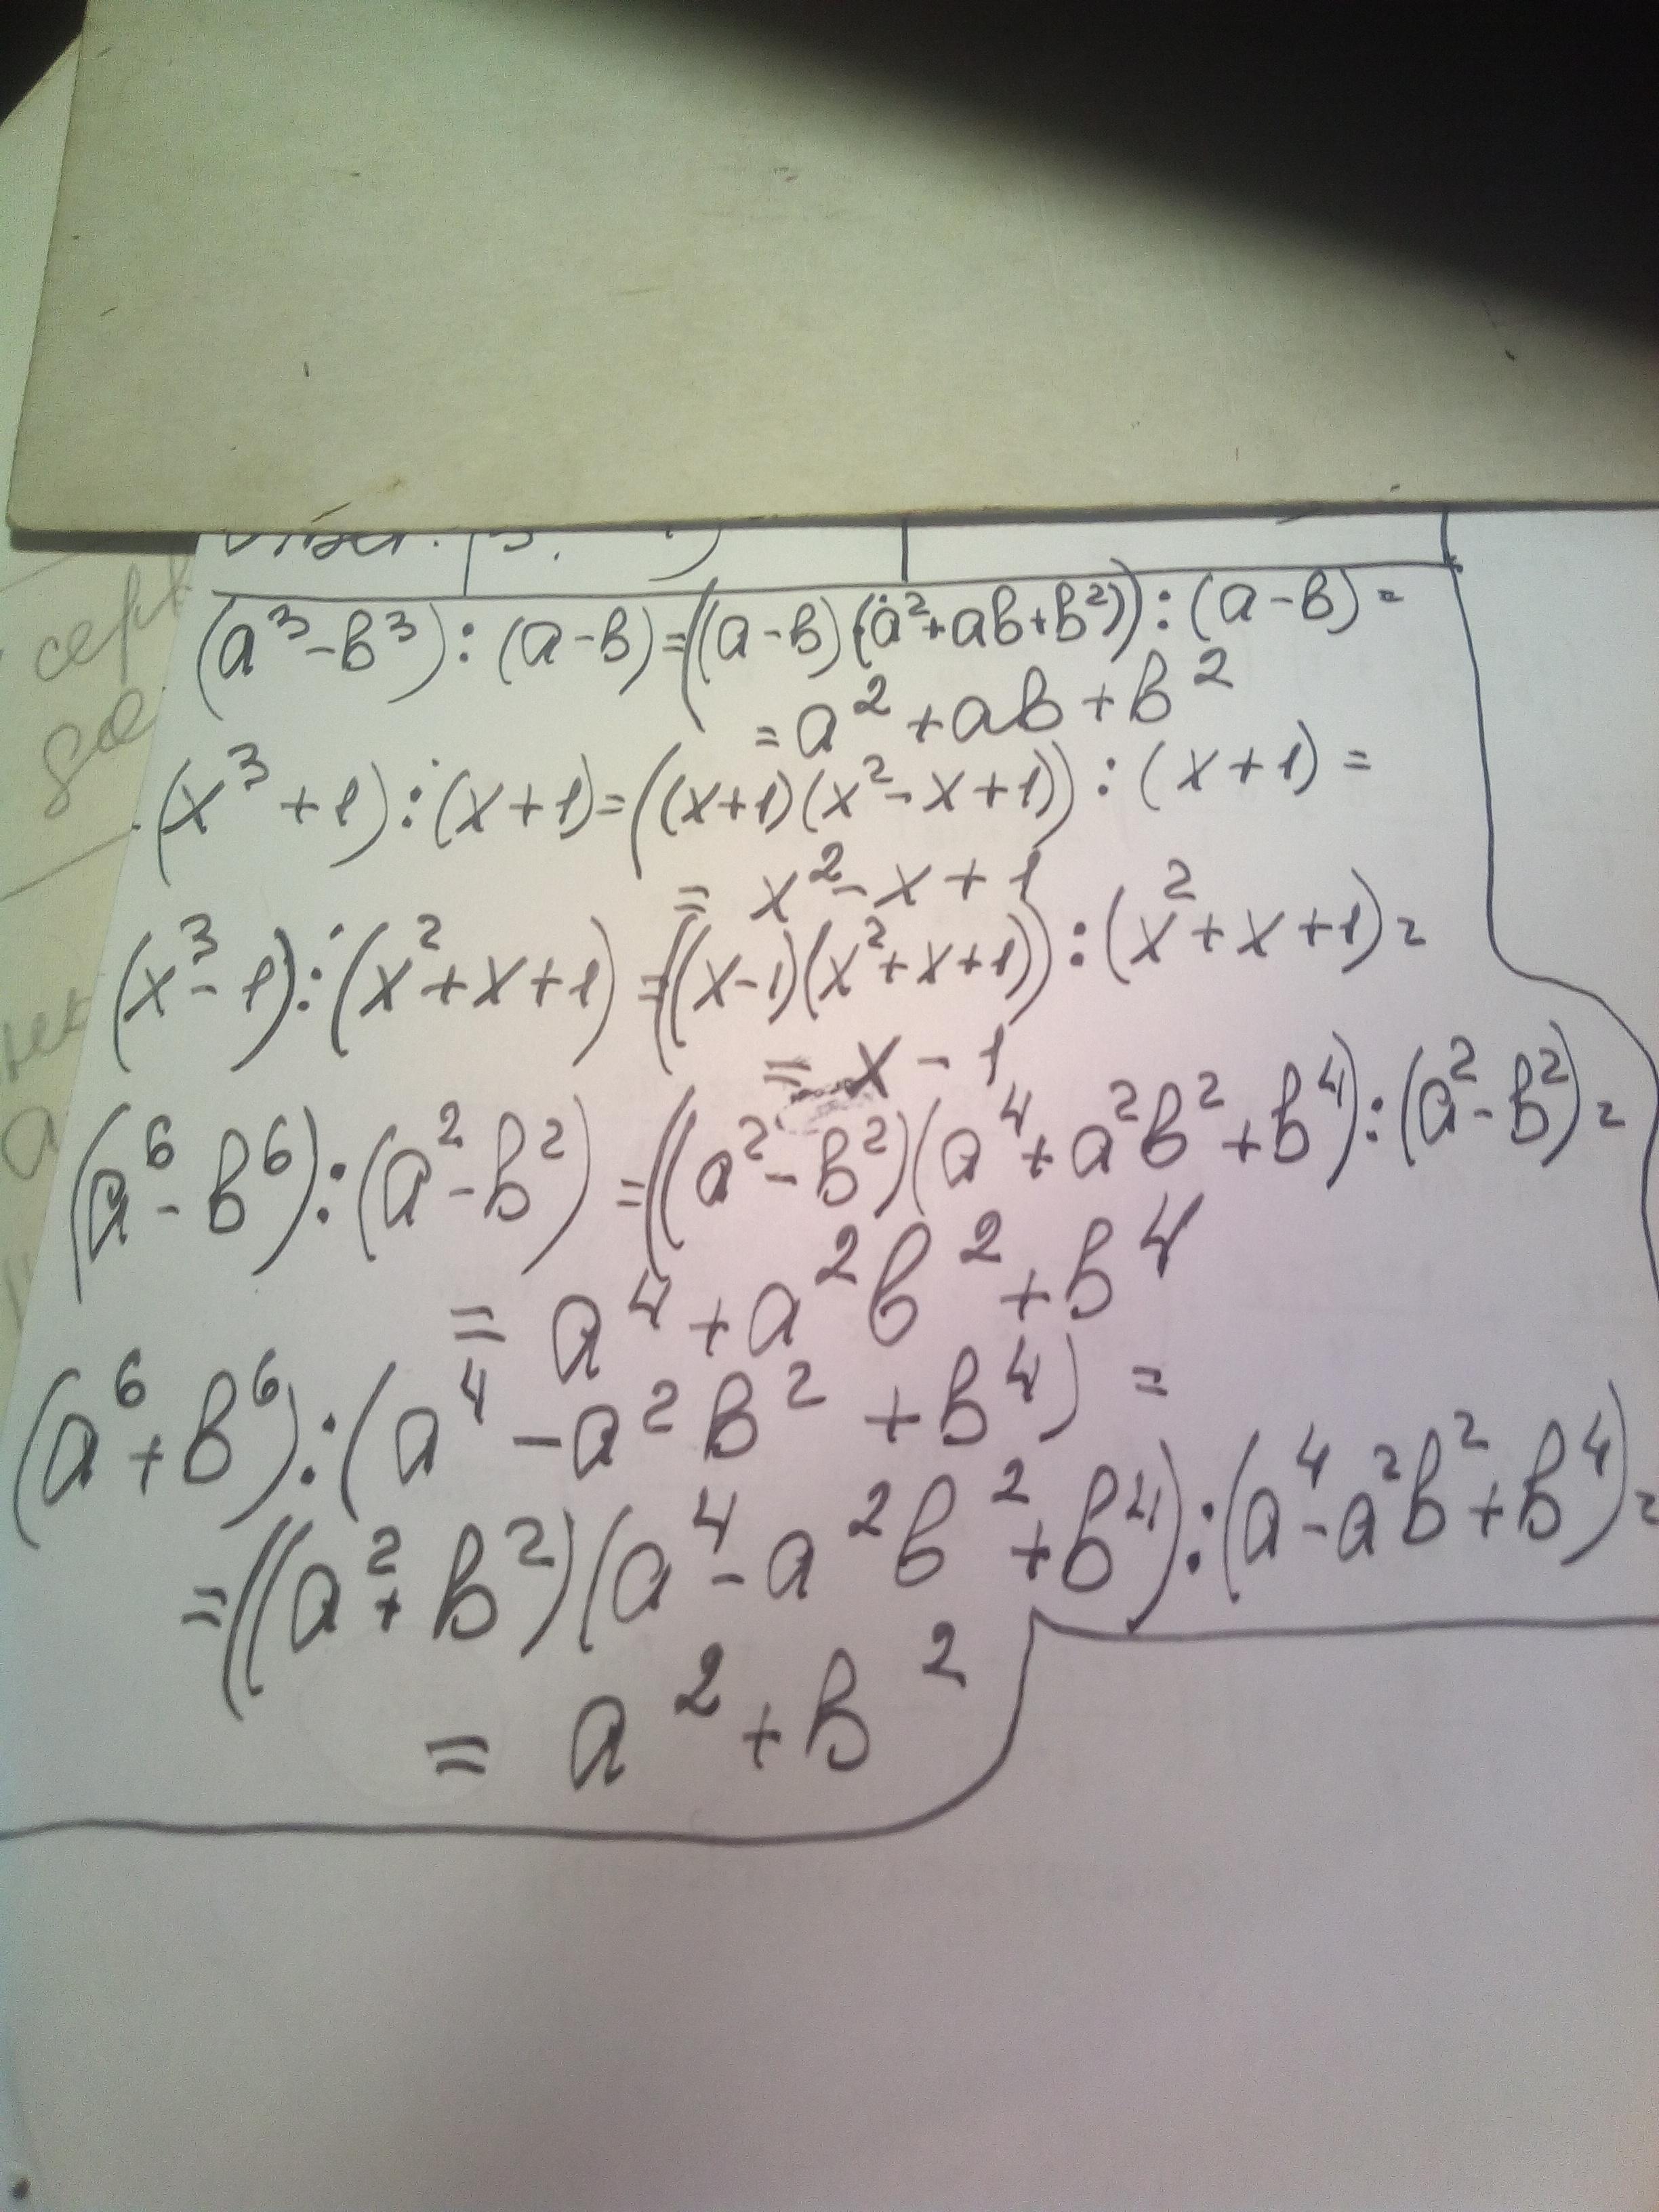 серт
(a³-b³):(a-b)=((a-b)(a²+ab+b²)):(a-b)=
=a²+ab+b²
(x³+1):(x+1)=((x+1)(x²-x+1)):(x+1)=
=x²-x+1
(x³-1):(x²+x+1)=((x-1)(x²+x+1)):(x²+x+1)=
=x-1
(a⁶-b⁶):(a²-b²)=((a²-b²)(a⁴+a²b²+b⁴):(a²-b²)=
=a⁴+a²b²+b⁴
(a⁶+b⁶):(a⁴-a²b²+b⁴)=
=((a²+b²)(a⁴-a²b²+b⁴):(a⁴-a²b²+b⁴)=
=a²+b²